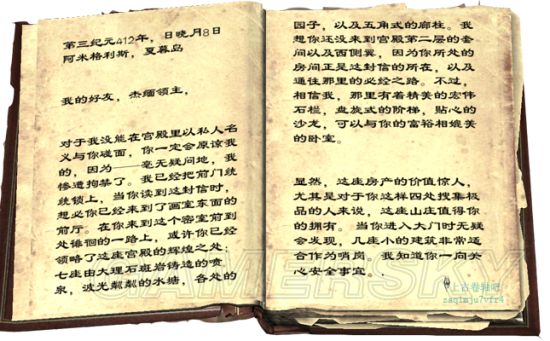 第三纪元412年，日晚月8日
阿米格利斯，夏暮岛
我的好友，杰缅领主，
对于我没能在宫殿里以私人名
义与你碰面，你一定会原谅我
的，因为——毫无疑问地，我
惨遭拘禁了。我已经把前门统
统锁上，当你读到这封信时，
想必你已经来到了画室东面的
前厅。在你来到这个密室前到
处徘徊的一路上，或许你已经
领略了这座宫殿的辉煌之处：
七座由大理石斑岩铸造的喷
泉，波光粼粼的水塘，各处的
园子，以及五角式的廊柱。我
想你还没来到宫殿第二层的套
间以及西侧翼，因为你所处的
房间正是这封信的所在，以及
通往那里的必经之路。不过，
相信我，那里有着精美的宏伟
石栏，盘旋式的阶梯，贴心的
沙龙，可以与你的富裕相媲美
的卧室。
显然，这座房产的价值惊人，
尤其是对于你这样四处搜集极
品的人来说，这座山庄值得你
的拥有。当你进入大门时无疑
会发现，几座小的建筑非常适
合作为哨岗，我知道你一向关
心安全事宜。
GAMERSKY
上古卷轴吧
zaqimju7vfr4